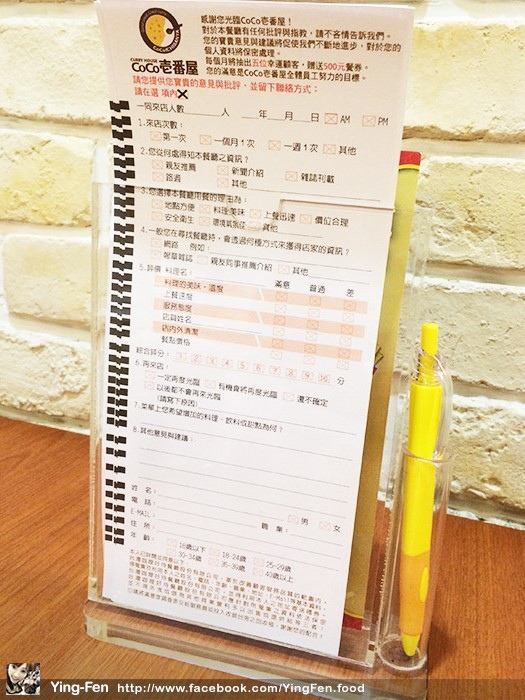 感謝您光臨CoCo壱番屋！
對於本餐廳有任何批評與指教，請不吝情告訴我們。
您的寶貴意見與建議將促使我們不斷地進步，對於您的
個人資料將保密處理。
每個月將抽出五位幸運顧客，贈送500元餐券。
您的滿意是CoCo壱番屋全體員工努力的目標。
CURRY HOUSE
CoCo壱番屋
請您提供您寶貴的意見與批評，並留下聯絡方式：
請在選 項內
一同來店人數 人 年 月 日 AM PM
1.來店次數：
第一次 一個月1次 一週1次 其他
2.您從何處得知本餐廳之資訊？
親友推薦 新聞介紹 雜誌刊載
路過 其他
3.您選擇本餐廳用餐的理由為：
地點方便 料理美味 上餐迅速 價位合理
安全衛生 環境氣氛佳 其他
4.一般您在尋找餐廳時，會透過何種方式來獲得店家的資訊？
網路 例如：
報章雜誌 親友同事推薦介紹 其他
5.評價 料理名： 滿意 普通 差
料理的美味、溫度
上餐速度
服務態度
店員姓名
店內外清潔
餐點價格
綜合評分： 1 2 3 4 5 6 7 8 9 10 分
6.再來店：
一定再度光臨 有機會將再度光臨 還不確定
以後都不會再來光臨
(請寫下原因)
7.菜單上您希望增加的料理、飲料或甜點為何？
8.其他意見與建議：
姓 名：
電 話：
E-MAIL： 男 女
住 所： 職 業：
年 齡： 18歲以下 18-24歲 25-29歲
30-34歲 35-39歲 40歲以上
Ying-Fen http://www.facebook.com/YingFen.food